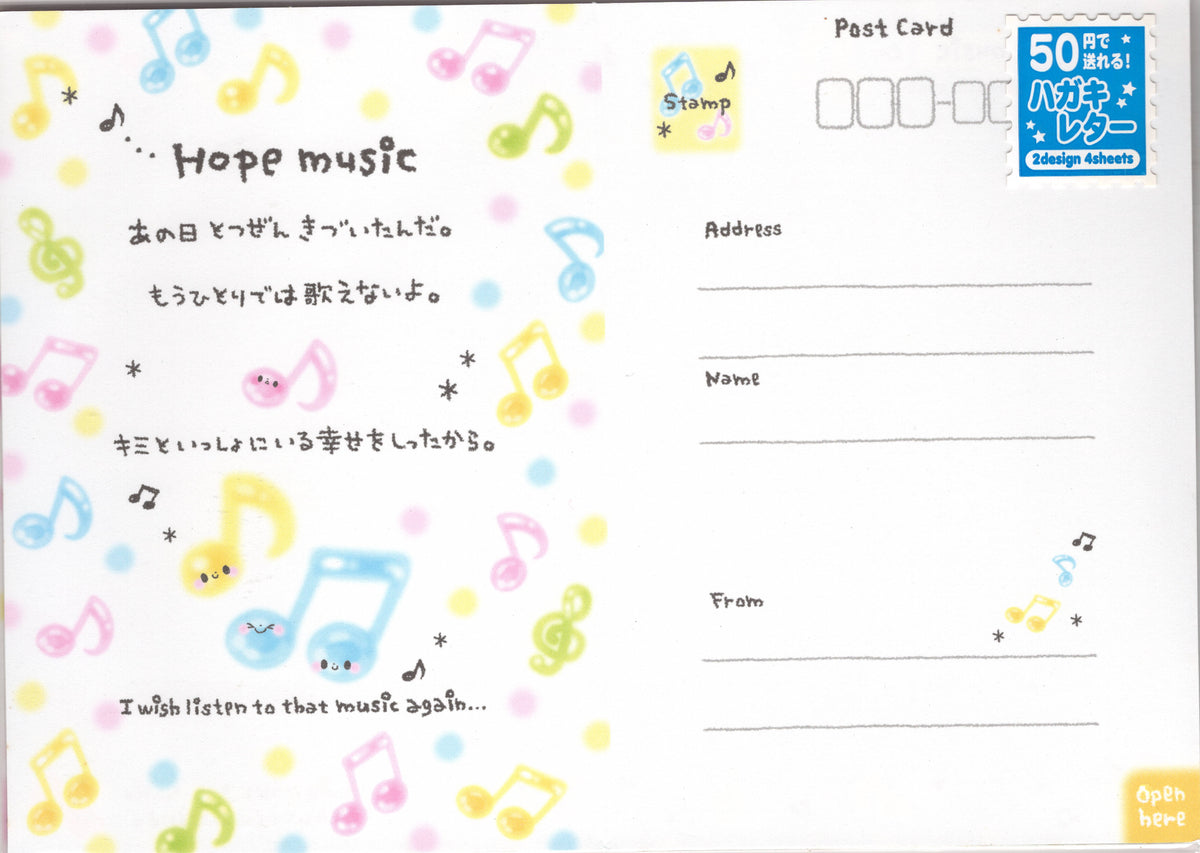 Hope music
あの日 とつぜん きづいたんだ。
もうひとりでは歌えないよ。
キミといっしょにいる幸せをしったから。
I wish listen to that music again...
Post Card
Stamp
50円で送れる!
ハガキ
レター
2design 4sheets
Address
Name
From
Open
here